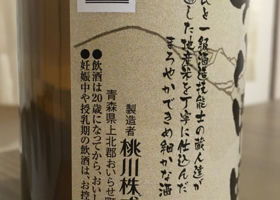 氏と一級酒造技能士の蔵人達が
した地産米を丁寧に仕込んだ
まろやかできめ細かな酒
製造者
桃川株式
青森県上北郡おいらせ町
●飲酒は20歳になってから。おいし
●妊娠中や授乳期の飲酒は、お控